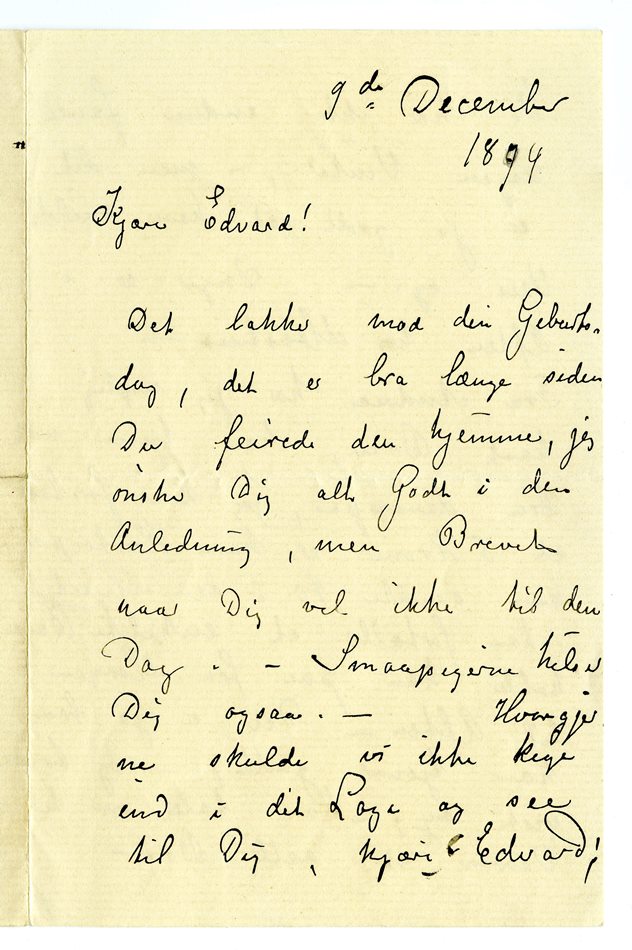 9de December
1894
Kjære Edvard!
Det lakker mod din Geburts-
dag, det er bra længe siden
Du feirede den hjemme, jeg
önsker Dig alt Godt i den
Anledning, men Brevet
naar Dig vel ikke til den
Dag. - Smaapigerne hilser
Dig ogsaa. — Hvor gjer
ne skulde vi ikke kige
ind i dit Loge og see
til Dig, kjære Edvard!